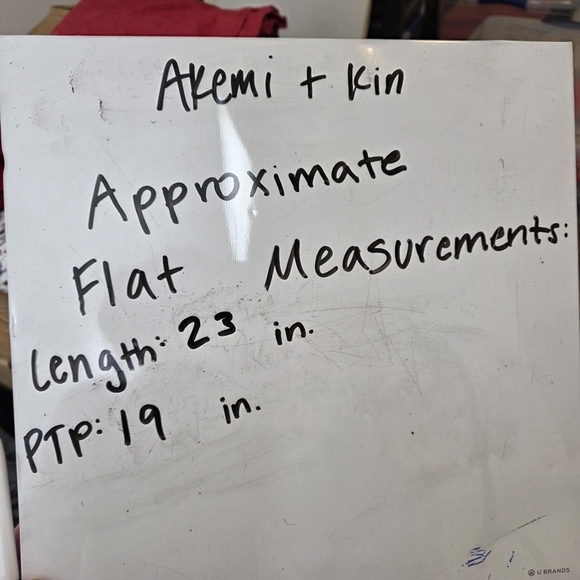 Akemi + Kin
Approximate
Flat Measurements:
Length: 23 in.
PTP: 19 in.
U BRANDS